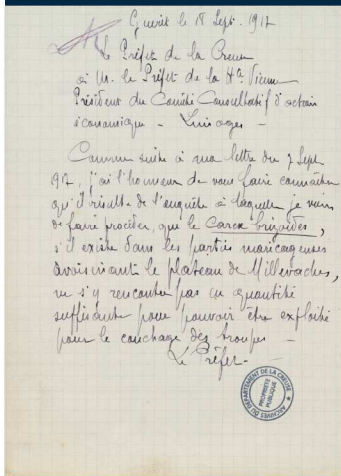 Guéret le 18 Sept. 1917
Le Préfet de la Creuse
à M. le Préfet de la Hte Vienne
Président du Comité Consultatif d'action
économique - Limoges -
Comme suite à ma lettre du 7 Sept
917, j'ai l'honneur de vous faire connaître
qu'il résulte de l'enquête à laquelle je viens
de faire procéder, que le Carex brizoïdes,
s'il existe dans les parties marécageuses
avoisinant le plateau de Millevaches,
ne s'y rencontre pas en quantité
suffisante pour pouvoir être exploité
pour le couchage des troupes -
Le Préfet -
ARCHIVES DU DEPARTEMENT DE LA CREUSE
PROPRIÉTÉ
PUBLIQUE